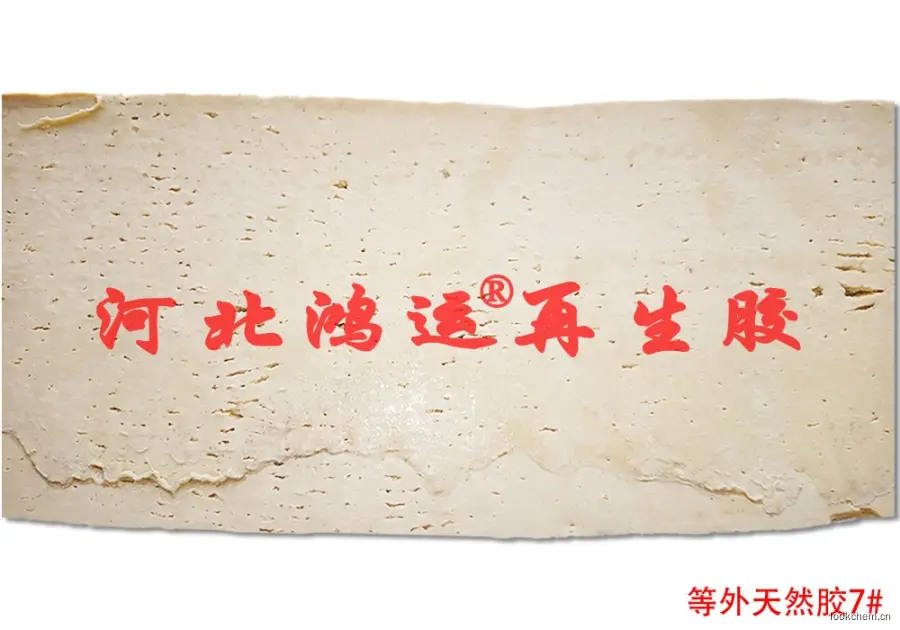 河北鸿运®再生胶
等外天然胶7#
lookchem.cn